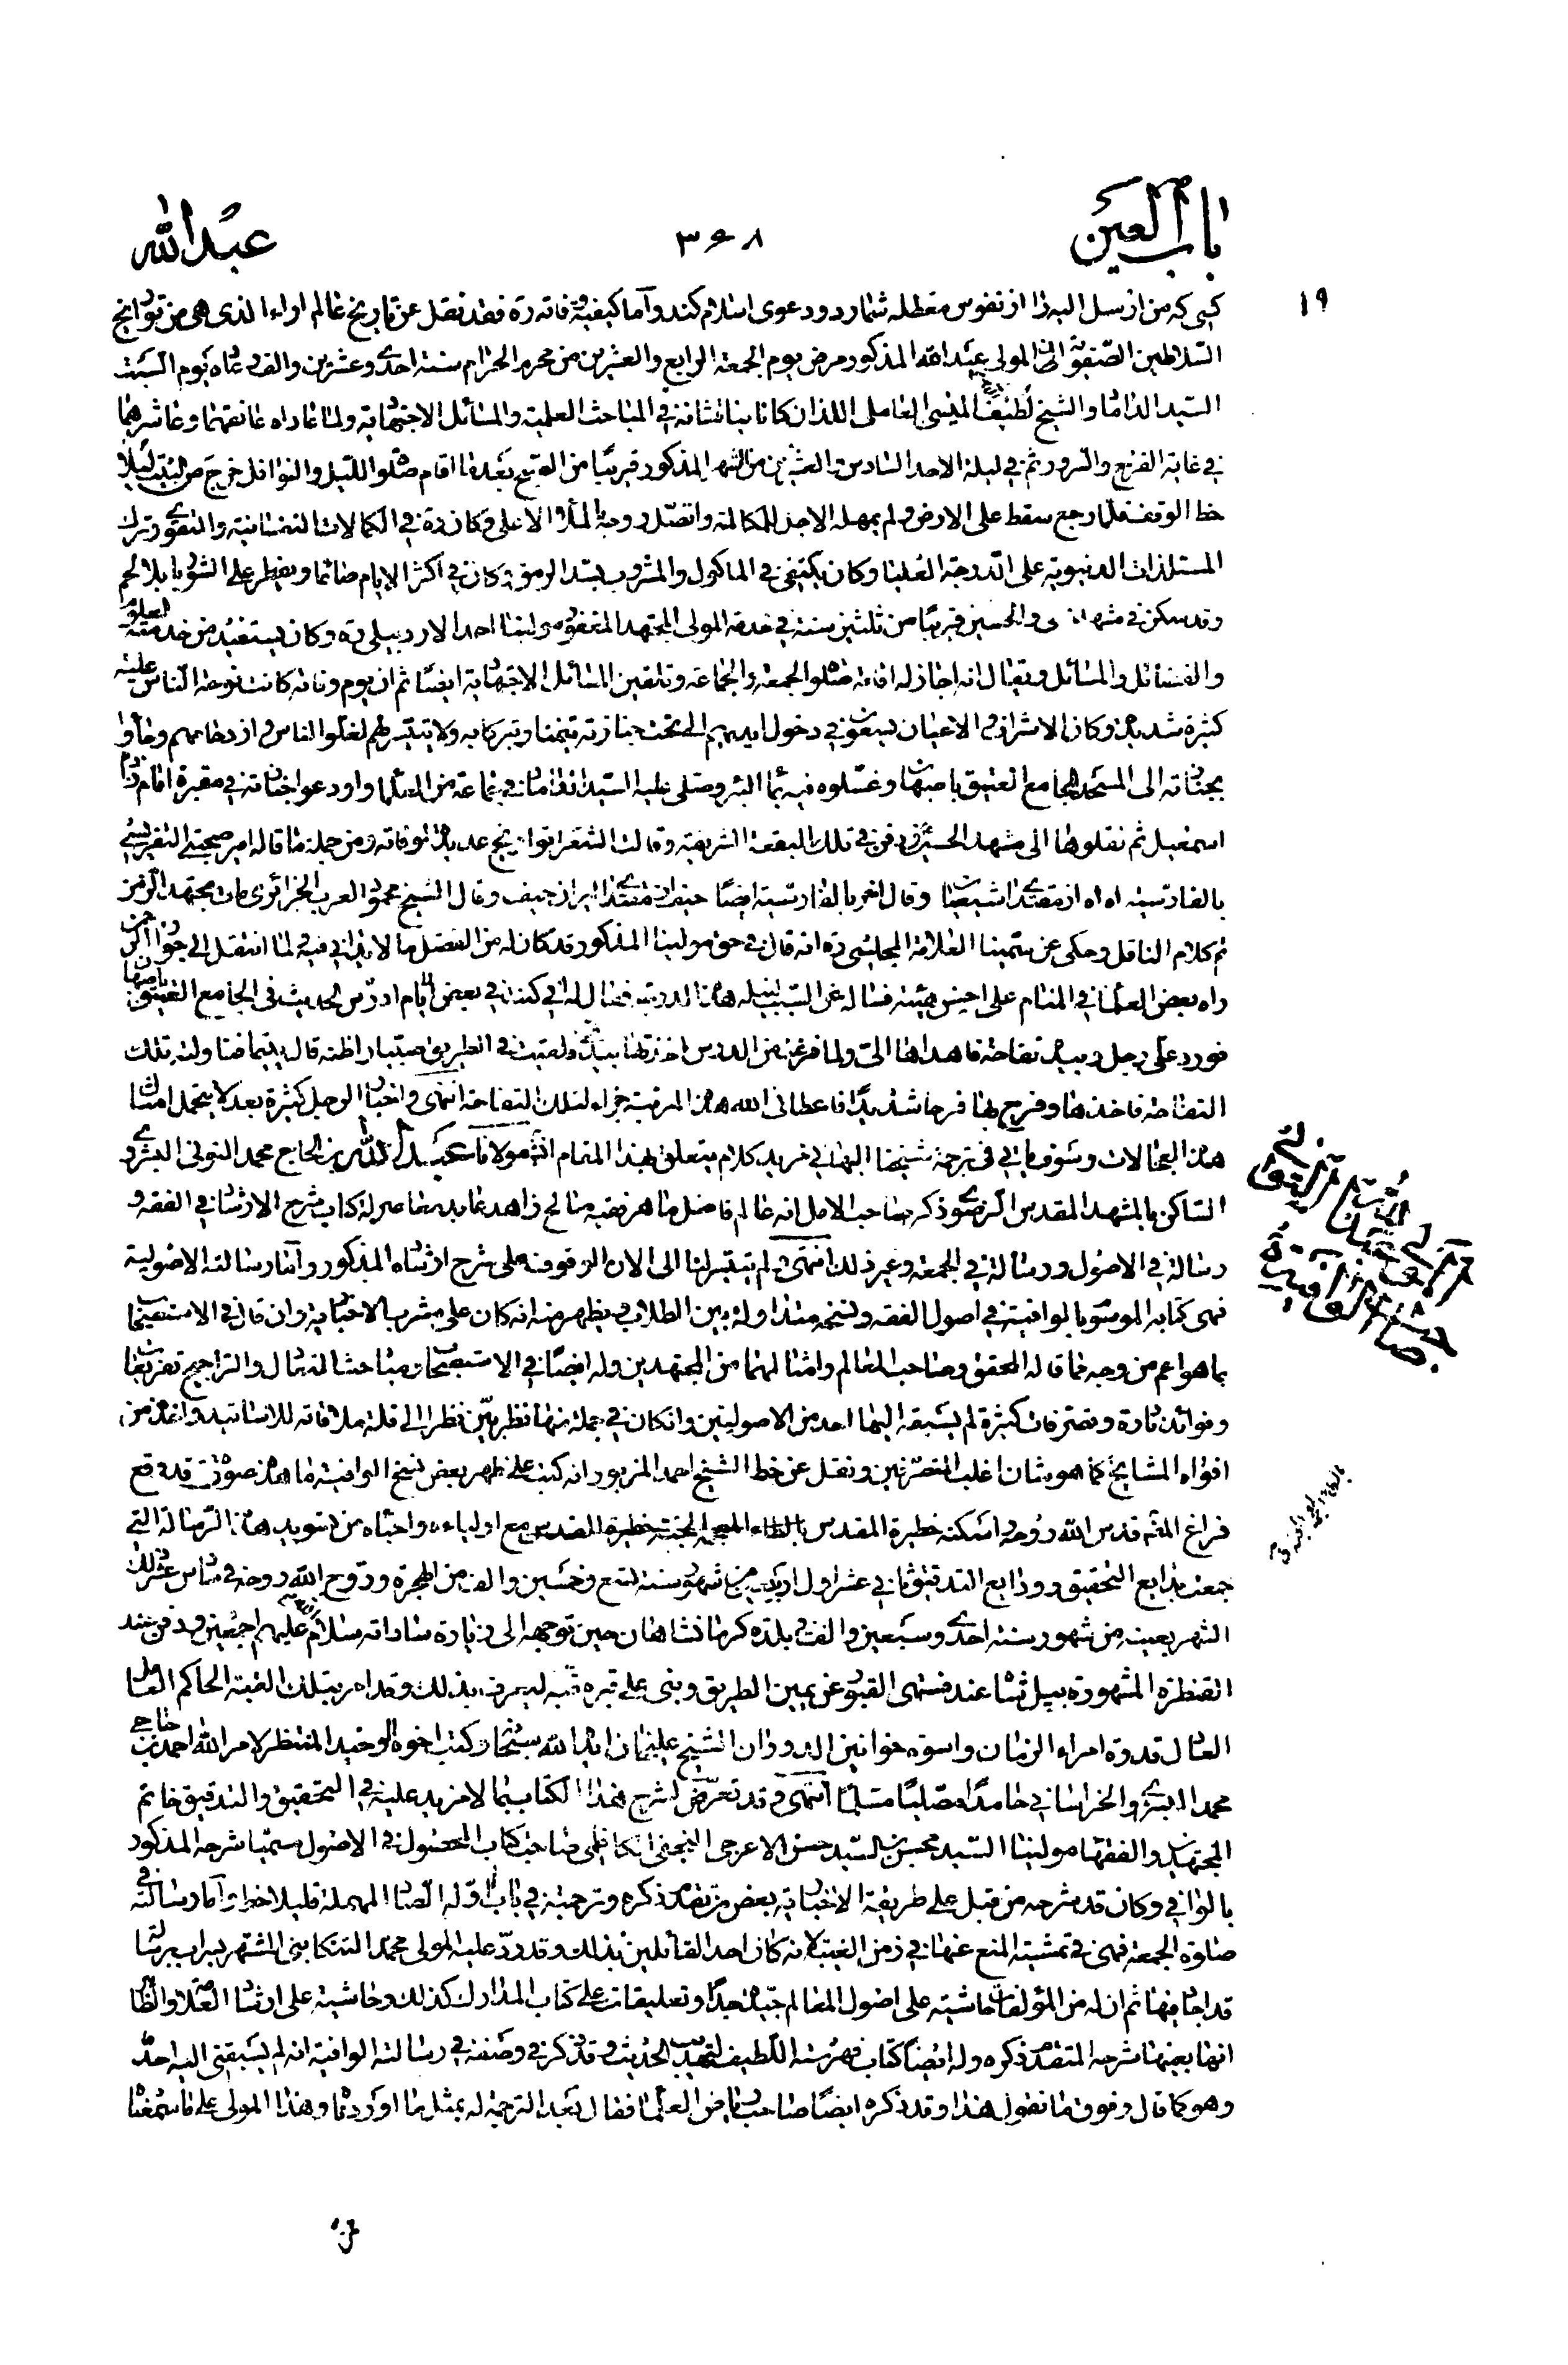 باب العين
٣٦٨
عبد الله
١٩
كسى كه من ارسل اليه را از نفوس معطله شمارد و دعوى اسلام كند وأما كيفية وفاته ره فقد نقل عن تاريخ عالم اراء الذى هى من تواريخ
السلاطين الصفوية ان المولى عبد الله المذكور مرض يوم الجمعة الرابع والعشرين من محرم الحرام سنة احدى وعشرين والف وعاده يوم السبت
السيد الداماد والشيخ لطف الله الميسى العاملى اللذان كانا يناقشانه فى المباحث العلمية والمسائل الاجتهادية ولما عاداه عانقهما وعاشرهما
فى غاية الفرح والسرور ثم فى ليلة الاحد السادس والعشرين من الشهر المذكور قريبا من الصبح بعد ما اقام صلوة الليل والنوافل خرج من البيت ليلا
حظ الوقت فلما رجع سقط على الارض ولم يمهله الاجل للمكالمة واتصل روحه بالملأ الاعلى وكان ره فى الكمالات النفسانية والتقوى وترك
المستلذات الدنيوية على الدرجة العليا وكان يكتفى فى الماكول والمشروب بسد الرمق وكان فى اكثر الايام صائما ويفطر على الشوربا بلا لحم
وقد سكن فى مشهد والحسين قريبا من ثلثين سنة فى خدمة المولى المجتهد المغفور مولينا احمد الاردبيلى ره وكان يستفيد من خدمته العلوم
والفضائل والمسائل ويقال انه اجاز له اقامة صلوة الجمعة والجماعة وتلقين المسائل الاجتهادية ايضا ثم ان يوم وفاته كانت نوحة الناس عليه
كثيرة شديدة وكان الاشراف والاعيان يسعون فى دخول ايديهم الى تحت جنازته تيمنا وتبركا به ولا تيسر لهم لغلو الناس وازدحامهم وجاؤا
بجنازته الى المسجد الجامع العتيق باصبهان وغسلوه فيه بماء البئر وصلى عليه السيد الداماد فى جماعة من العلماء واودعوا جنازته فى مقبرة امام زاده
اسمعيل ثم نقلوها الى مشهد الحسين ودفن فى تلك البقعة الشريفة وقالت الشعراء تواريخ عديدة لوفاته ومن جملة ما قاله امير صحبتى التفريشى
بالفارسية اه اه از مقتداى شيعيان وقال اخر بالفارسية ايضا حيف از مقتداى ايران حيف وقال الشيخ محمود العرب الجزائرى مات مجتهد الزمن
تم كلام الناقل وحكى عن سمينا العلامة المجلسى ره انه قال فى حق مولينا المذكور قد كان له من الفضل ما لا يدانى فيه لما انتقل الى جوار الرحمن
راه بعض العلماء فى المنام على احسن هيئة فساله عن السبب لنيله هذه الدرجة فقال له انى كنت فى بعض الايام ادرس الحديث فى الجامع العتيق باصبهان
فورد على رجل وبيده تفاحة فاهداها الى ولما فرغت من الدرس اخذتها بيدى ولقيت فى الطريق صبيا اظنه قال يتيما فناولته تلك
التفاحة فاخذها وفرح بها فرحا شديدا فاعطانى الله هذه المرتبة جزاء لتلك التفاحة انتهى واخبار الرجل كثيرة بعد لا يتحمل امثال
هذه العجالات وسوف ياتى فى ترجمة شيخنا البهائى مزيد كلام يتعلق بهذا المقام انش مولانا عبد الله بن الحاج محمد التونى البشروى
الساكن بالمشهد المقدس الرضوى ذكر صاحب الامل انه عالم فاضل ماهر فقيه صالح زاهد عابد معاصر له كتاب شرح الارشاد فى الفقه و
رسالة فى الاصول ورسالة فى الجمعة وغير ذلك انتهى ولم يتيسر لنا الى الان الوقوف على شرح ارشاده المذكور وأما رسالته الاصولية
فهى كتابه الموسوم بالوافية فى اصول الفقه ونسخه متداولة بين الطلاب يظهر منه انه كان على مشرب الاخبارية وان قال فى الاستصحاب
بما هو اعم من وجه مما قاله المحقق وصاحب المعالم وامثالهما من المجتهدين وله ايضا فى الاستصحاب ومباحث التعادل والتراجيح تفريعات
وفوائد نادرة وتصرفات كثيرة لم يسبقه اليها احد من الاصوليين وان كان فى جملة منها نظر بين نظرا الى قلة ملاقاته للاساتيد واخذه من
افواه المشايخ كما هو شان اغلب المتصرفين ونقل عن خط الشيخ احمد المزبور انه كتب على ظهر بعض نسخ الوافية ما هذه صورته قد وقع
فراغ المصنف قدس الله روحه واسكنه حظيرة المقدس مع اولياءه واحبائه من تسويد هذه الرسالة التى
جمعت بدايع التحقيق وودايع التدقيق ثانى عشر اول الربيعين من شهور سنة تسع وخمسين والف من الهجرة وروح الله روحه فى سادس عشر ذلك
الشهر بعينه من شهور سنة احدى وسبعين والف فى بلدة كرمانشاهان حين توجهه الى زيارة ساداته سلام الله عليهم اجمعين ودفن عند
القنطرة المشهورة ببل شاه عند منتهى القبور عن يمين الطريق وبنى على قبره قبة ليعرف بذلك وقد امر بتلك القبة الحاكم العامل
العادل قدوة امراء الزمان واسوة خوانين الدوران الشيخ عليخان ايده الله سبحانه وكتب اخوه الوحيد المنتظر لامر الله احمد بن حاجى
محمد البشروى الخراسانى حامدا مصليا مسلما انتهى وقد تعرض لشرح هذا الكتاب بما لا مزيد عليه فى التحقيق والتدقيق خاتم
المجتهدين والفقهاء مولينا السيد محسن بن السيد حسن الاعرجى النجفى الكاظمى صاحب كتاب المحصول فى الاصول مسميا شرحه المذكور
بالوافى وكان قد شرحه من قبل على طريقة الاخبارية بعض من تقدم ذكره وترجمته فى باب ما اوله الصاد المهملة قليلا خط وأما رسالته فى
صلوة الجمعة فهى فى تمشية المنع عنها فى زمن الغيبة لانه كان احد القائلين بذلك وقد رد عليه المولى محمد التنكابنى المشتهر بسراب برسالة
قد اجاد فيها ثم ان له من المؤلفات حاشية على اصول المعالم جيدة جدا وتعليقات على كتاب المدارك كذلك وحاشية على ارشاد العلامة والظاهر
انها بعينها شرحه المتقدم ذكره وله ايضا كتاب فهرسته اللطيف لتهذيب الحديث وقد ذكر فى وصفه فى رسالته الوافية انه لم يسبقنى اليه احد
وهو كما قال وفوق ما نقول هذا وقد ذكره ايضا صاحب رياض العلماء فقال بعد الترجمة له بمثل ما اوردناه وهذا المولى على ما سمعنا